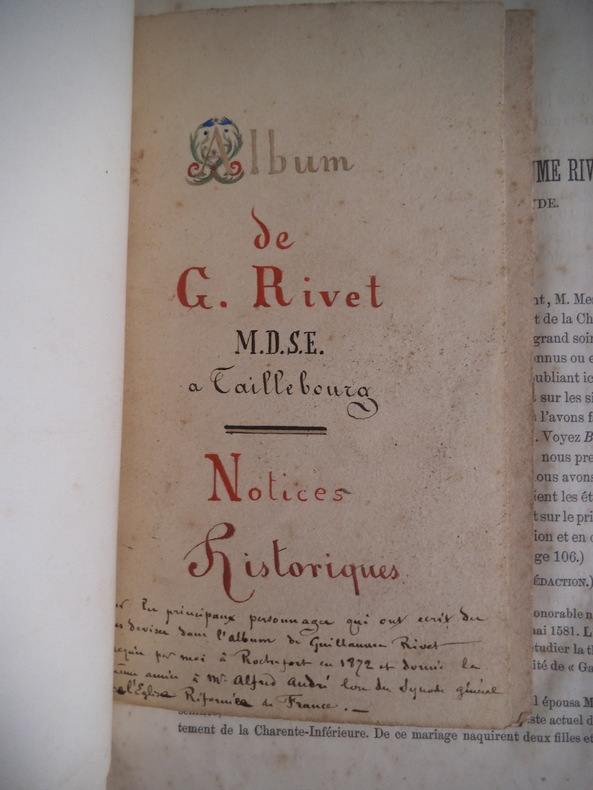 Album
de
G. Rivet
M.D.S.E.
a Taillebourg
Notices
Historiques
principaux personnages qui ont ecrit des
devises dans l'album de Guillaume Rivet
par moi à Rochefort en 1872 et donnée la
année à Mr Alfred André lors du Synode général
l'Eglise Réformée de France. _
UME RIV
DE.
nt, M. Me
t de la Ch
grand soin
onnus ou e
ubliant ic
sur les si
l'avons f
. Voyez B
nous pre
ous avons
ient les ét
t sur le pri
ion et en
ge 106.)
ÉDACTION.)
onorable n
mai 1581. L
tudier la th
ité de « Ga
l épousa M
ste actuel d
tement de la Charente-Inférieure. De ce mariage naquirent deux filles et